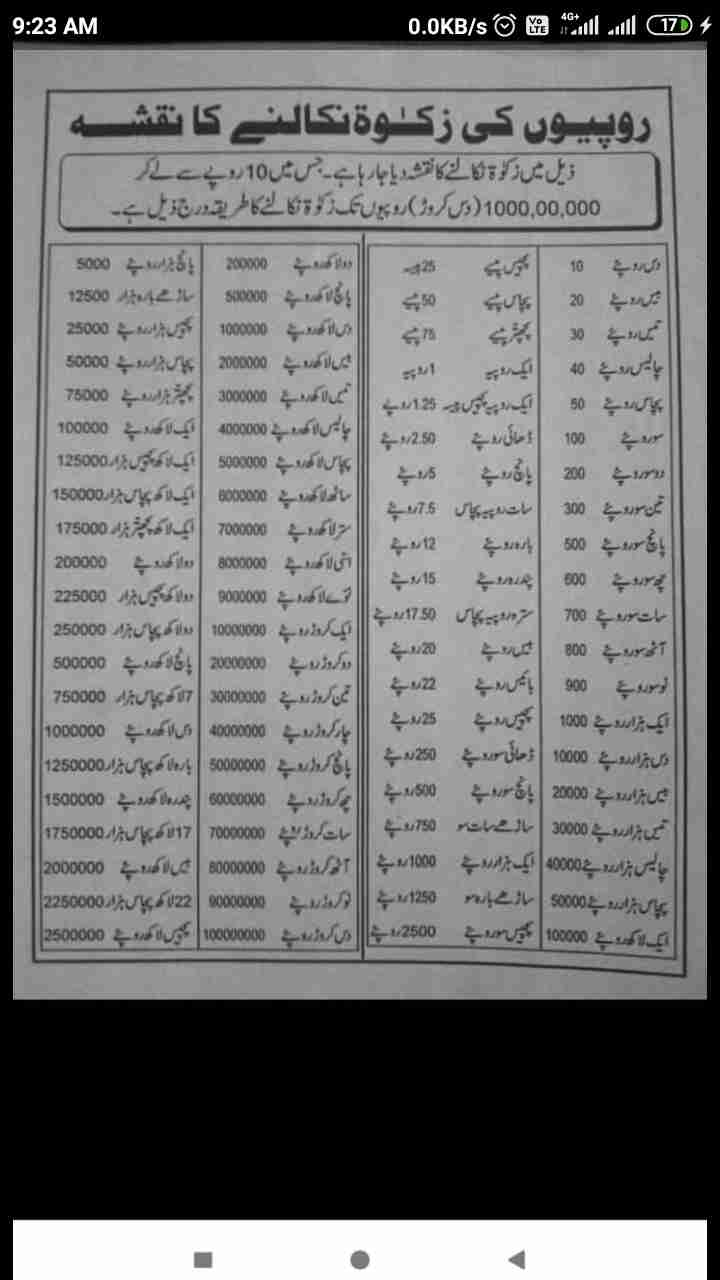 9:23 AM 0.0KB/s Vo LTE 4G+ 17
روپیوں کی زکوٰۃ نکالنے کا نقشہ
ذیل میں زکوٰۃ نکالنے کا نقشہ دیا جا رہا ہے۔ جس میں 10 روپے سے لے کر
1000,00,000 (دس کروڑ) روپیوں تک زکوٰۃ نکالنے کا طریقہ درج ذیل ہے۔
دس روپئے 10 پچیس پیسے 25 پیسہ
بیس روپئے 20 پچاس پیسے 50 پیسے
تیس روپئے 30 پچھتر پیسے 75 پیسے
چالیس روپئے 40 ایک روپیہ 1 روپیہ
پچاس روپئے 50 ایک روپیہ پچیس پیسہ 1.25 روپئے
سو روپئے 100 ڈھائی روپئے 2.50 روپئے
دو سو روپئے 200 پانچ روپئے 5 روپئے
تین سو روپئے 300 سات روپیہ پچاس 7.5 روپئے
پانچ سو روپئے 500 بارہ روپئے 12 روپئے
چھ سو روپئے 600 پندرہ روپئے 15 روپئے
سات سو روپئے 700 سترہ روپیہ پچاس 17.50 روپئے
آٹھ سو روپئے 800 بیس روپئے 20 روپئے
نو سو روپئے 900 بائیس روپئے 22 روپئے
ایک ہزار روپئے 1000 پچیس روپئے 25 روپئے
دس ہزار روپئے 10000 ڈھائی سو روپئے 250 روپئے
بیس ہزار روپئے 20000 پانچ سو روپئے 500 روپئے
تیس ہزار روپئے 30000 ساڑھے سات سو 750 روپئے
چالیس ہزار روپئے 40000 ایک ہزار روپئے 1000 روپئے
پچاس ہزار روپئے 50000 ساڑھے بارہ سو 1250 روپئے
ایک لاکھ روپئے 100000 پچیس سو روپئے 2500 روپئے
دو لاکھ روپئے 200000 پانچ ہزار روپئے 5000
پانچ لاکھ روپئے 500000 ساڑھے بارہ ہزار 12500
دس لاکھ روپئے 1000000 پچیس ہزار روپئے 25000
بیس لاکھ روپئے 2000000 پچاس ہزار روپئے 50000
تیس لاکھ روپئے 3000000 پچھتر ہزار روپئے 75000
چالیس لاکھ روپئے 4000000 ایک لاکھ روپئے 100000
پچاس لاکھ روپئے 5000000 ایک لاکھ پچیس ہزار 125000
ساٹھ لاکھ روپئے 6000000 ایک لاکھ پچاس ہزار 150000
ستر لاکھ روپئے 7000000 ایک لاکھ پچھتر ہزار 175000
اسّی لاکھ روپئے 8000000 دو لاکھ روپئے 200000
نوّے لاکھ روپئے 9000000 دو لاکھ پچیس ہزار 225000
ایک کروڑ روپئے 10000000 دو لاکھ پچاس ہزار 250000
دو کروڑ روپئے 20000000 پانچ لاکھ روپئے 500000
تین کروڑ روپئے 30000000 7 لاکھ پچاس ہزار 750000
چار کروڑ روپئے 40000000 دس لاکھ روپئے 1000000
پانچ کروڑ روپئے 50000000 بارہ لاکھ پچاس ہزار 1250000
چھ کروڑ روپئے 60000000 پندرہ لاکھ روپئے 1500000
سات کروڑ روپئے 70000000 17 لاکھ پچاس ہزار 1750000
آٹھ کروڑ روپئے 80000000 بیس لاکھ روپئے 2000000
نو کروڑ روپئے 90000000 22 لاکھ پچاس ہزار 2250000
دس کروڑ روپئے 100000000 پچیس لاکھ روپئے 2500000